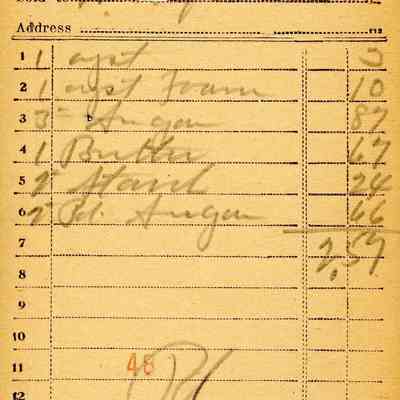 Address
1 1 3
2 1 10
3 3 Sugar 87
4 1 Butter 67
5 2 Starch 24
6 2 Pd. Sugar 66
7 2,57
8
9
10
11 48
12 Pd